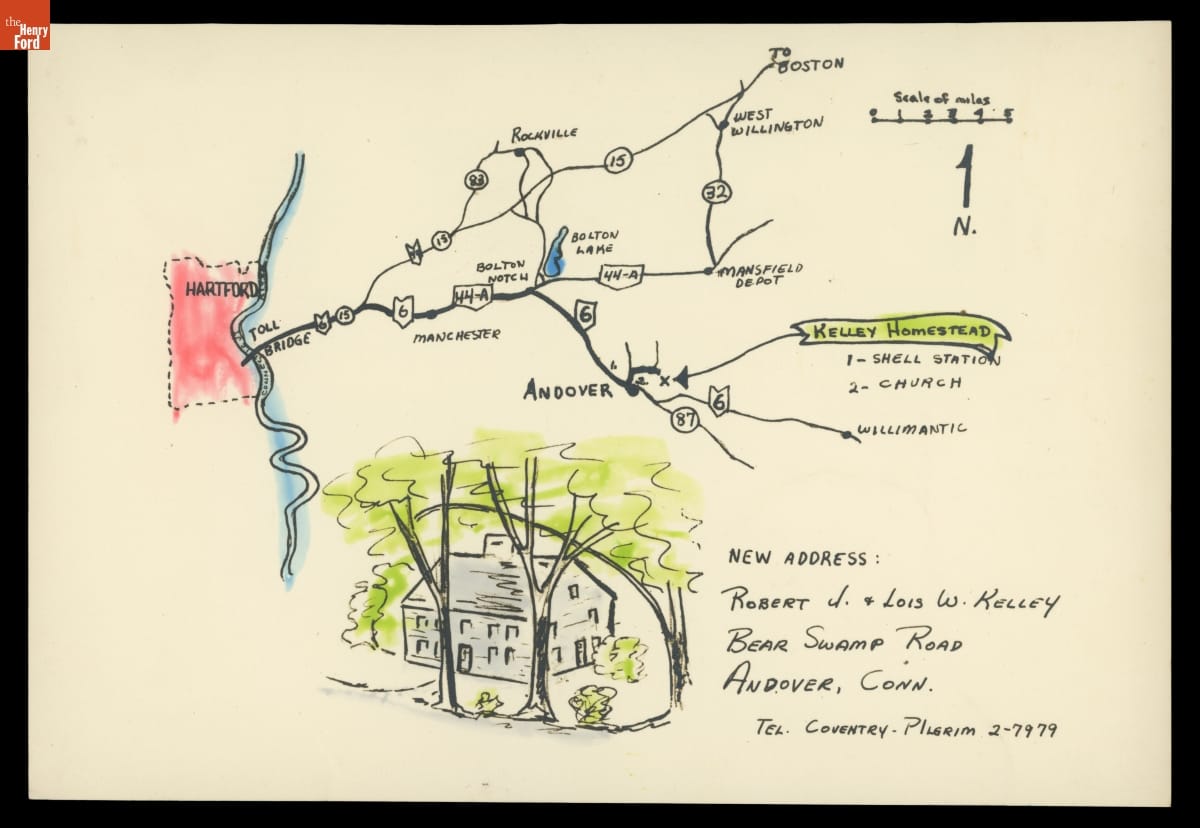 the
Henry
Ford
TO
BOSTON
Scale of miles
0 1 2 3 4 5
WEST
WILLINGTON
ROCKVILLE
15
83
32
N.
15
BOLTON
LAKE
BOLTON
NOTCH
44-A
MANSFIELD
DEPOT
HARTFORD
44-A
6
6
15
6
TOLL
BRIDGE
MANCHESTER
KELLEY HOMESTEAD
1- SHELL STATION
2- CHURCH
1.
2
X
ANDOVER
6
87
WILLIMANTIC
NEW ADDRESS:
ROBERT J. & LOIS W. KELLEY
BEAR SWAMP ROAD
ANDOVER, CONN.
TEL. COVENTRY-PILGRIM 2-7979